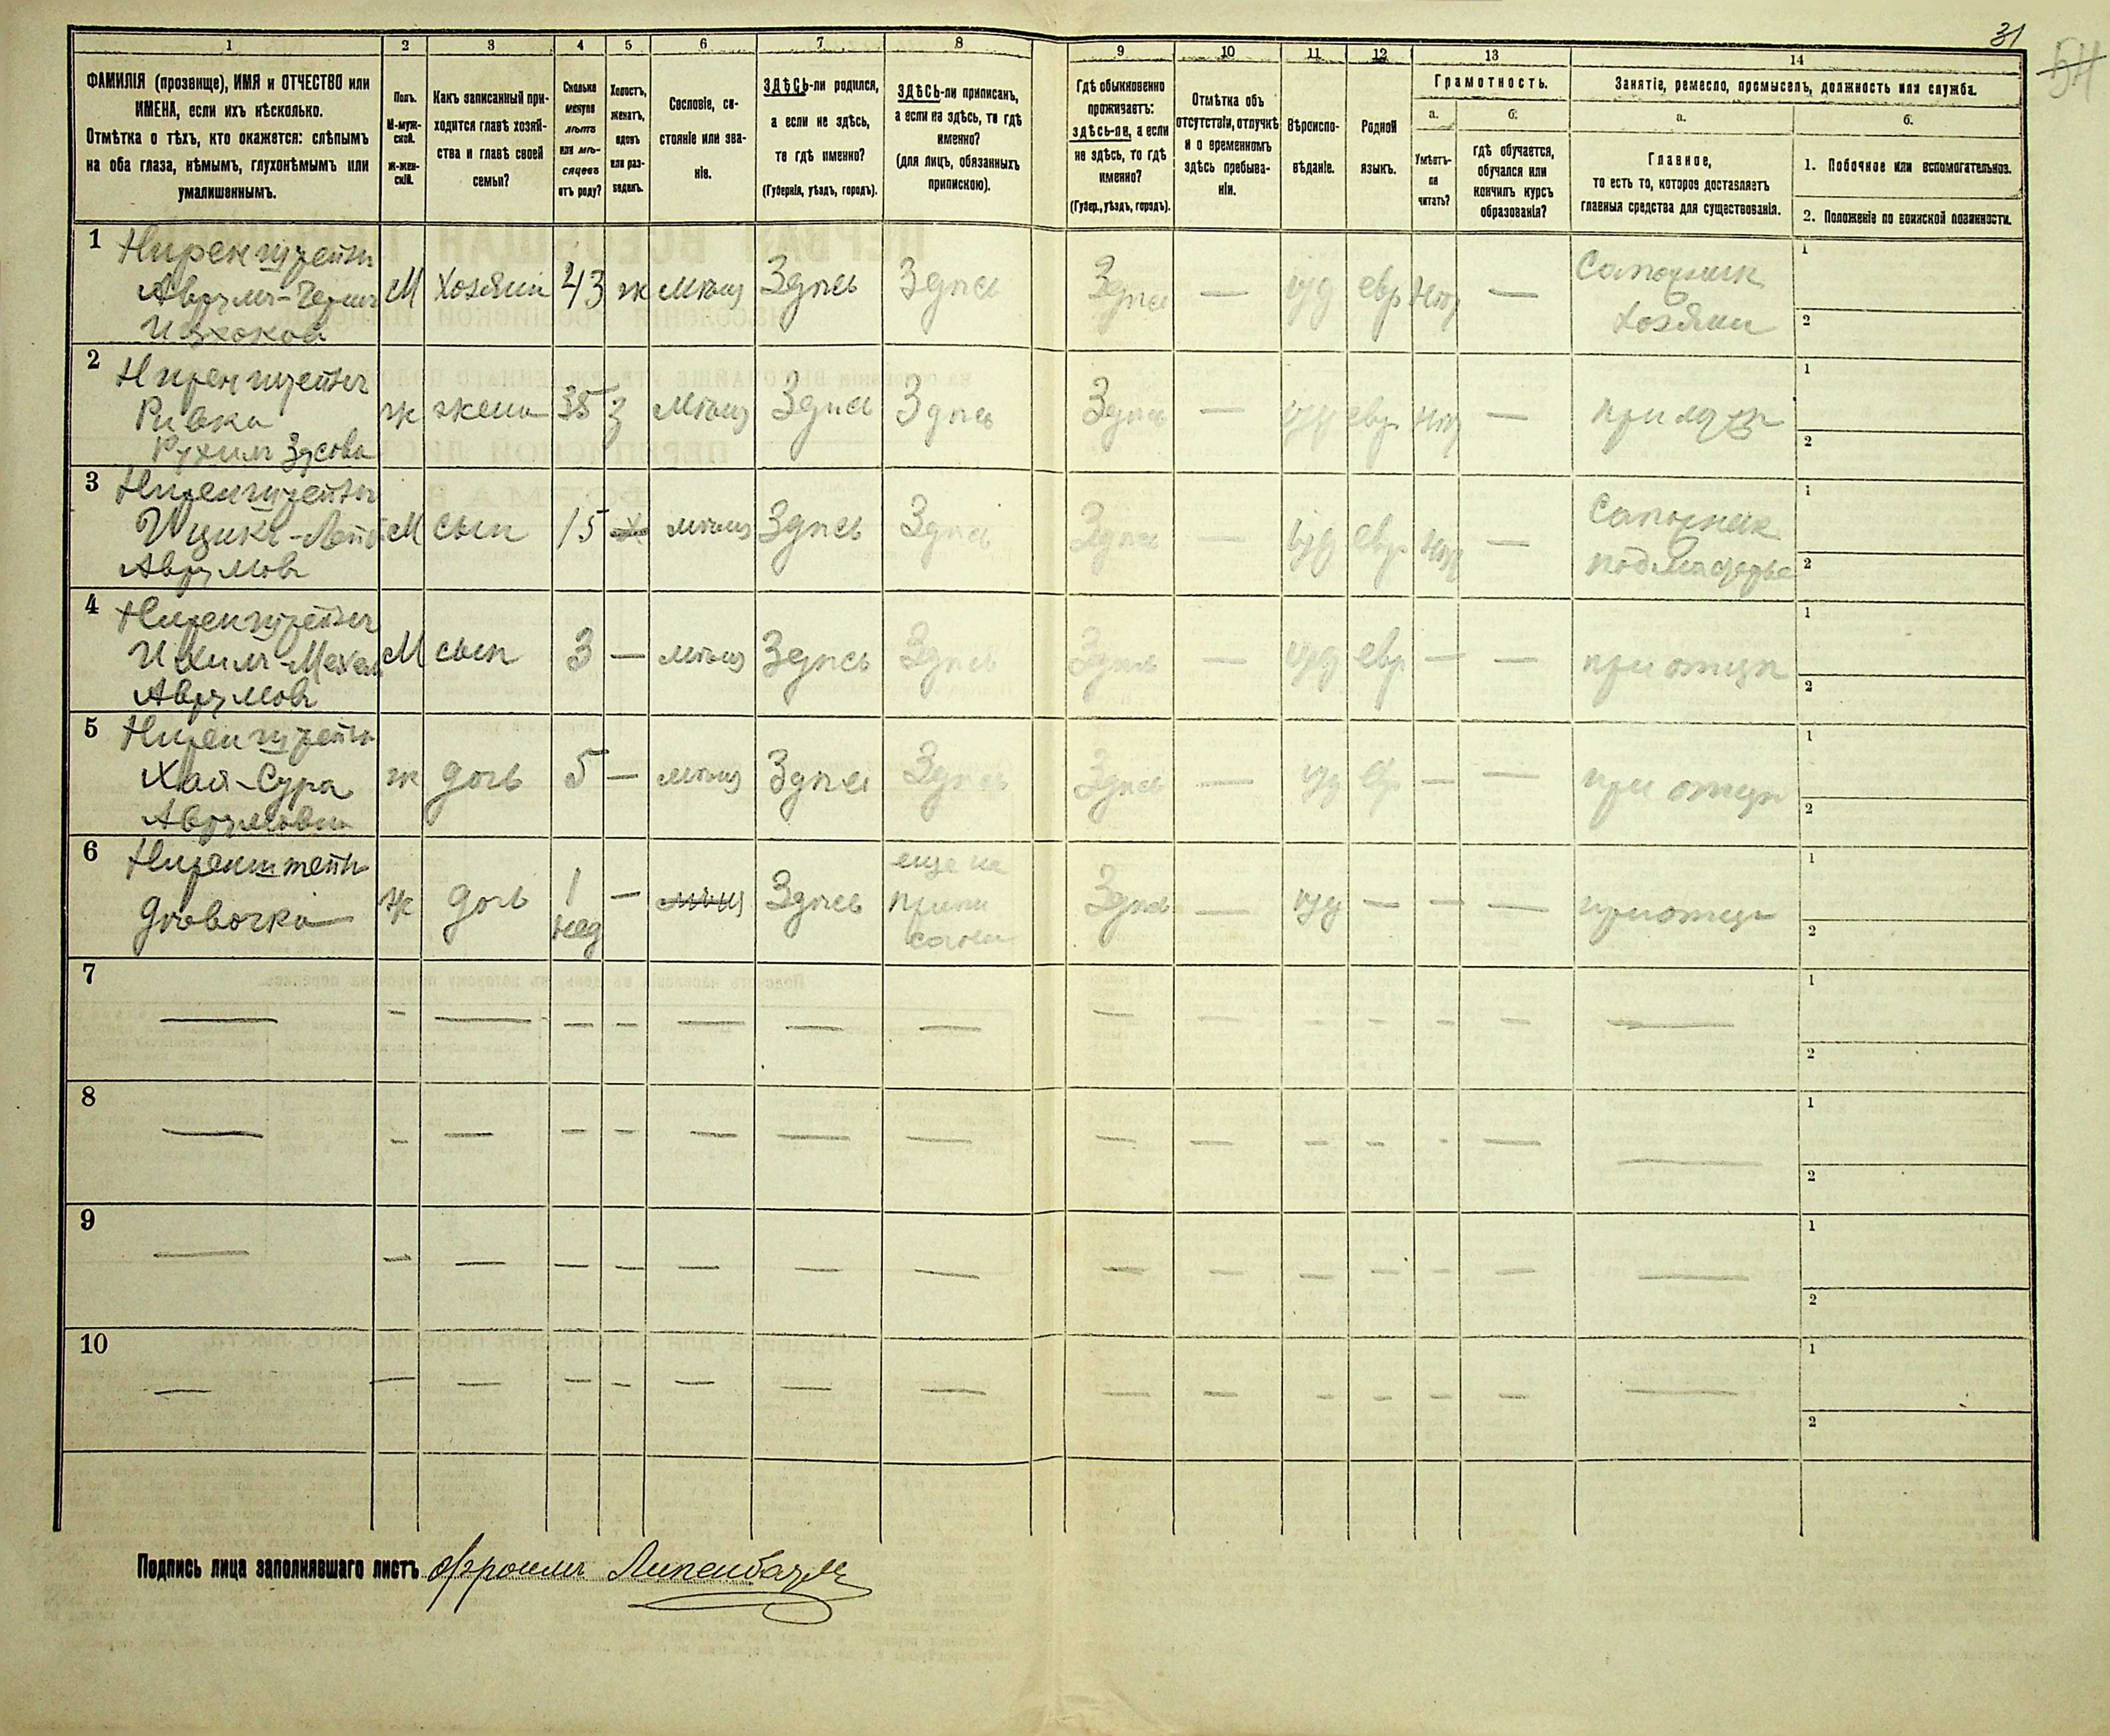 31
1
2
3
4
5
6
7
8
9
10
11
12
13
14
ФАМИЛІЯ (прозвище), ИМЯ и ОТЧЕСТВО или
ИМЕНА, если ихъ нѣсколько.
Отмѣтка о тѣхъ, кто окажется: слѣпымъ
на оба глаза, нѣмымъ, глухонѣмымъ или
умалишеннымъ.
Полъ.
М-муж-
ской.
Ж-жен-
скій.
Какъ записанный при-
ходится главѣ хозяй-
ства и главѣ своей
семьи?
Сколько
минуло
лѣтъ
или мѣ-
сяцевъ
отъ роду?
Холостъ,
женатъ,
вдовъ
или раз-
веденъ.
Сословіе, со-
стояніе или зва-
ніе.
ЗДѢСЬ-ли родился,
а если не здѣсь,
то гдѣ именно?
(Губернія, уѣздъ, городъ).
ЗДѢСЬ-ли приписанъ,
а если не здѣсь, то гдѣ
именно?
(для лицъ, обязанныхъ
припискою).
Гдѣ обыкновенно
проживаетъ:
здѣсь-ли, а если
не здѣсь, то гдѣ
именно?
(Губер., уѣздъ, городъ).
Отмѣтка объ
отсутствіи, отлучкѣ
и о временномъ
здѣсь пребыва-
ніи.
Вѣроиспо-
вѣданіе.
Родной
языкъ.
Грамотность.
а.
Умѣетъ-
ли
читать?
б.
гдѣ обучается,
обучался или
кончилъ курсъ
образованія?
Занятіе, ремесло, промыселъ, должность или служба.
а.
Главное,
то есть то, которое доставляетъ
главныя средства для существованія.
б.
1. Побочное или вспомогательное.
2. Положеніе по воинской повинности.
1 Ниренштейнъ
М Хозяин 43 ж мѣщ Здѣсь Здѣсь Здѣсь — іуд евр нѣт — Сапожник
Хозяин
1
2
2 Ниренштейнъ
Ривка
Рухиль Зусова
ж жена 35 З мѣщ Здѣсь Здѣсь Здѣсь — іуд евр нѣт —
1
2
3 Ниренштейнъ
Аврумов
М сын 15 Х мѣщ Здѣсь Здѣсь Здѣсь — іуд евр нѣт — Сапожник
подмастерье
1
2
4 Ниренштейнъ
Авrумовъ
М сын 3 — мѣщ Здѣсь Здѣсь Здѣсь — іуд евр — — при отцѣ
1
2
5 Ниренштейнъ
Хая-Сура
Аврумовна
ж дочь 5 — мѣщ Здѣсь Здѣсь Здѣсь — іуд евр — — при отцѣ
1
2
6 Ниренштейнъ
дѣвочка
ж дочь 1
нед
— мѣщ Здѣсь еще не
припи
сана
Здѣсь — іуд — — — при отцѣ
1
2
7 — — — — — — — — — — — — — — —
1
2
8 — — — — — — — — — — — — — — —
1
2
9 — — — — — — — — — — — — — — —
1
2
10 — — — — — — — — — — — — — — —
1
2
Подпись лица заполнявшаго листъ